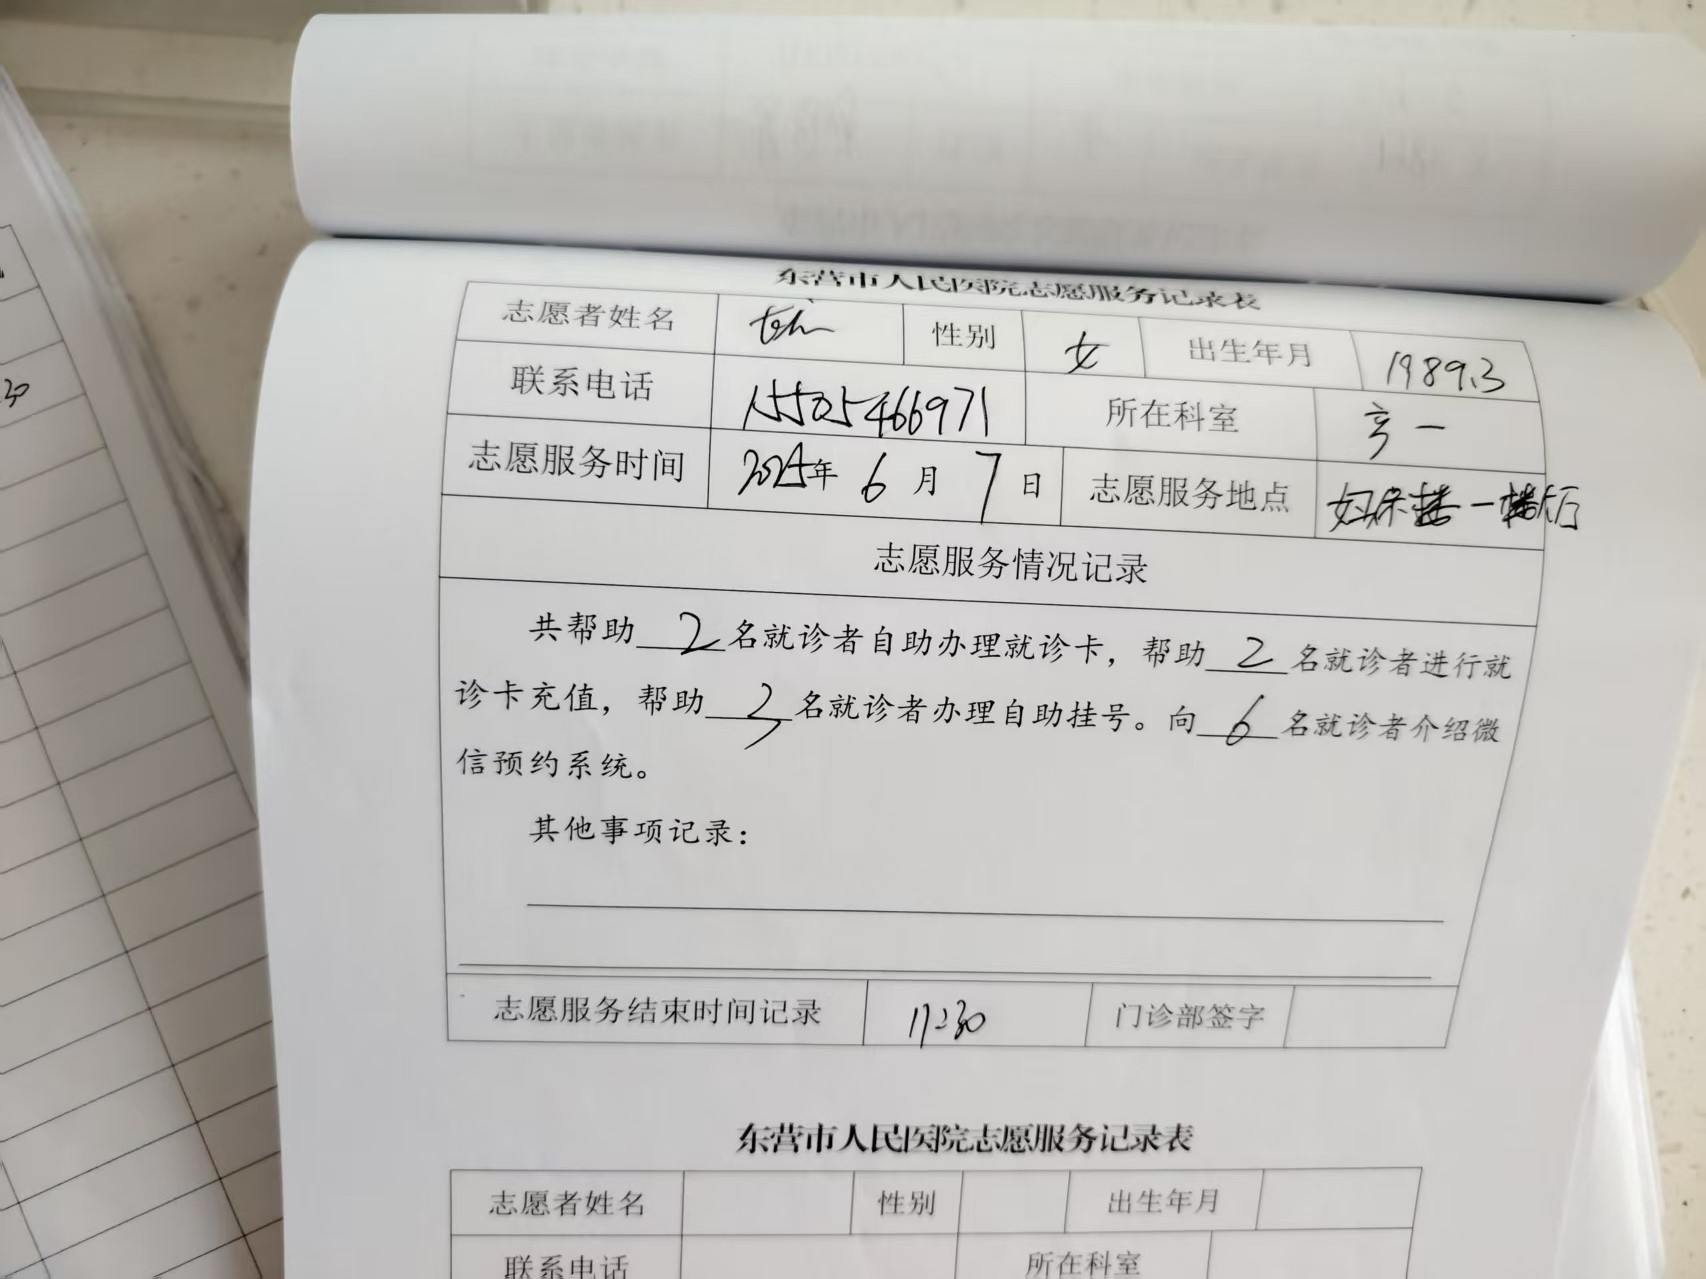 东营市人民医院志愿服务记录表
志愿者姓名 性别 女 出生年月 1989.3
联系电话 15505466971 所在科室 一
志愿服务时间 2025年 6 月 7 日 志愿服务地点 妇保楼一楼大厅
志愿服务情况记录
共帮助 2 名就诊者自助办理就诊卡，帮助 2 名就诊者进行就
诊卡充值，帮助 3 名就诊者办理自助挂号。向 6 名就诊者介绍微
信预约系统。
其他事项记录：
志愿服务结束时间记录 11:30 门诊部签字
东营市人民医院志愿服务记录表
志愿者姓名 性别 出生年月
联系电话 所在科室
30